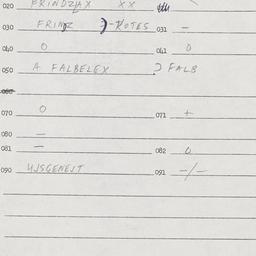 020 PRINDZLAX XX
030 FRINZ -ROTES 031 -
040 O 041 O
050 A FALBELEX ? FALB
060
070 O 071 +
080 -
081 - 082 O
090 UJSGENEJT 091 -/-